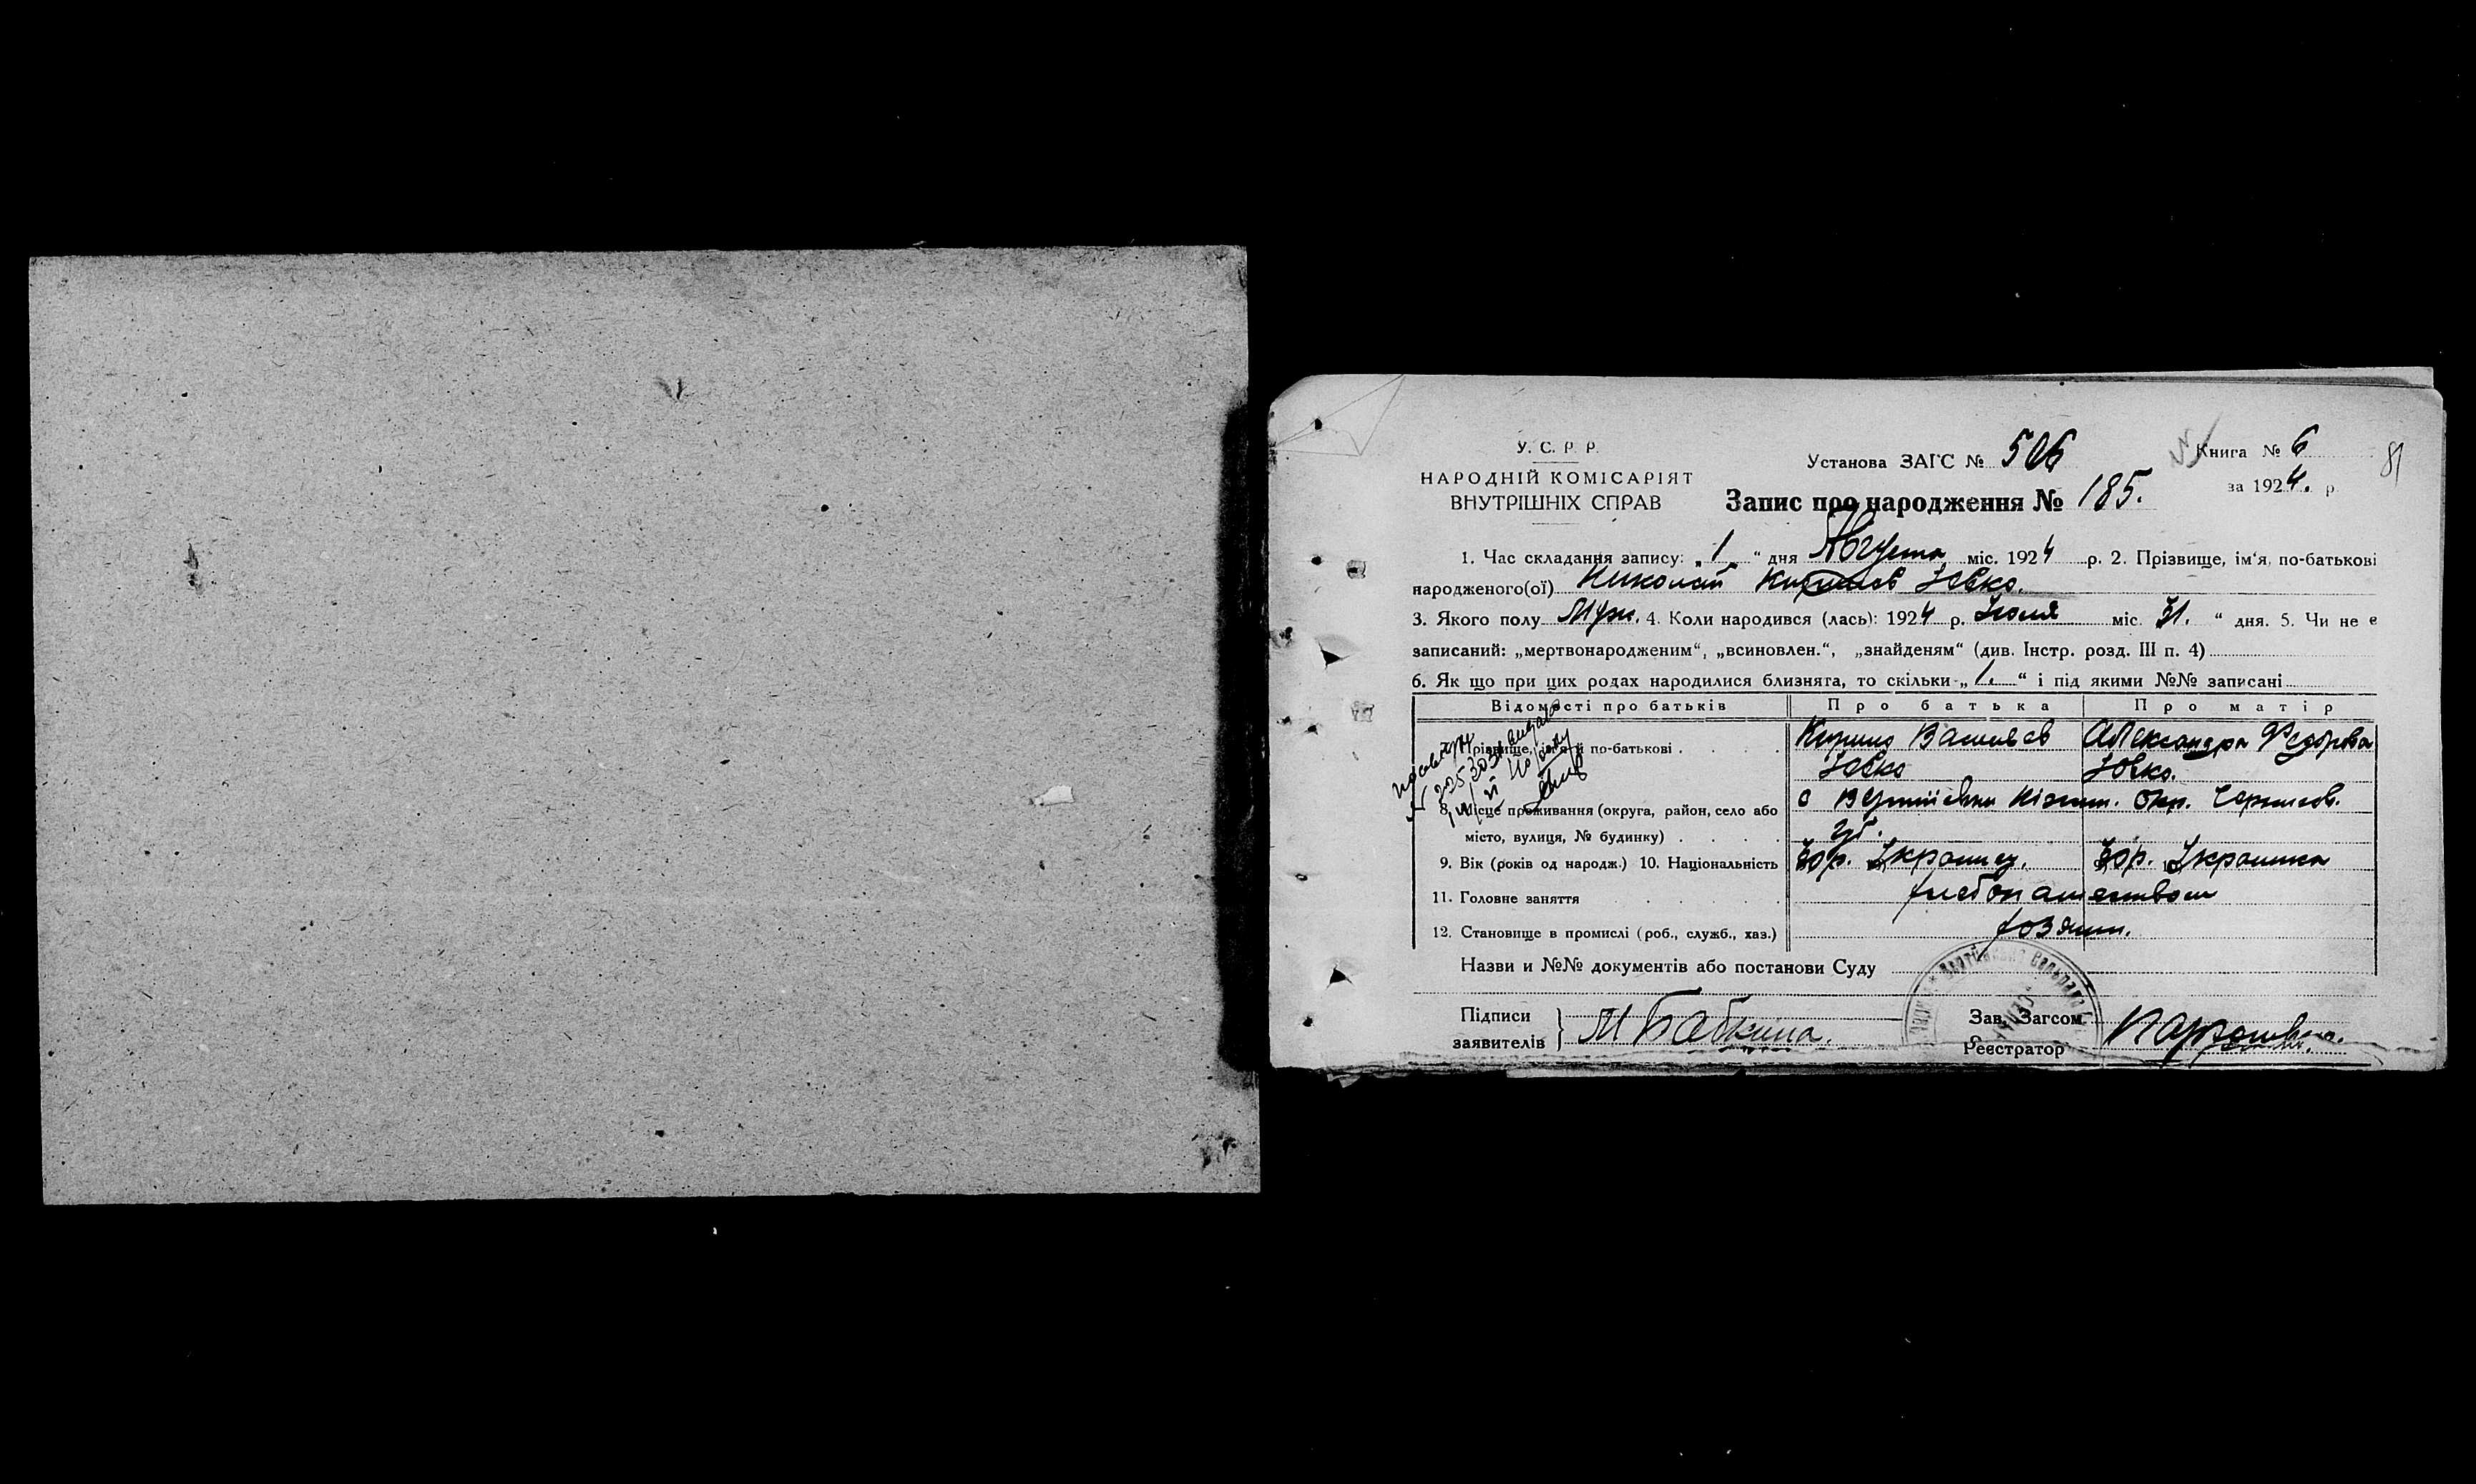 У. С. Р. Р.
НАРОДНІЙ КОМІСАРІЯТ
ВНУТРІШНІХ СПРАВ
Установа ЗАГС № 506
Книга № 6
за 1924. р.
81
Запис про народження № 185.
1. Час складання запису: „1“ дня Августа міс. 1924 р. 2. Прізвище, ім'я, по-батькові
народженого(ої) Николай Кирилов Ювко.
3. Якого полу Муж. 4. Коли народився (лась): 1924 р. Июля міс. 31. “ дня. 5. Чи не є
записаний: „мертвонародженим“, „всиновлен.“, „знайденям“ (див. Інстр. розд. III п. 4)
6. Як що при цих родах народилися близняга, то скільки „1.“ і під якими №№ записані
Відомості про батьків Про батька Про матір
Прізвище, ім'я й по-батькові Кирило Васильев Александра Федорова
Ювко Ювко.
8. Місце проживання (округа, район, село або с Вертіевки Ніжин. Окр. Чернигов.
місто, вулиця, № будинку) губ.
9. Вік (років од народж.) 10. Національність 30 р. Украинец. 30 р. Украинка
11. Головне заняття хлебопашеством
12. Становище в промислі (роб., служб., хаз.) хозяин.
Назви и №№ документів або постанови Суду
Підписи
заявителів М Бабкина.
Зав. Загсом
Реєстратор